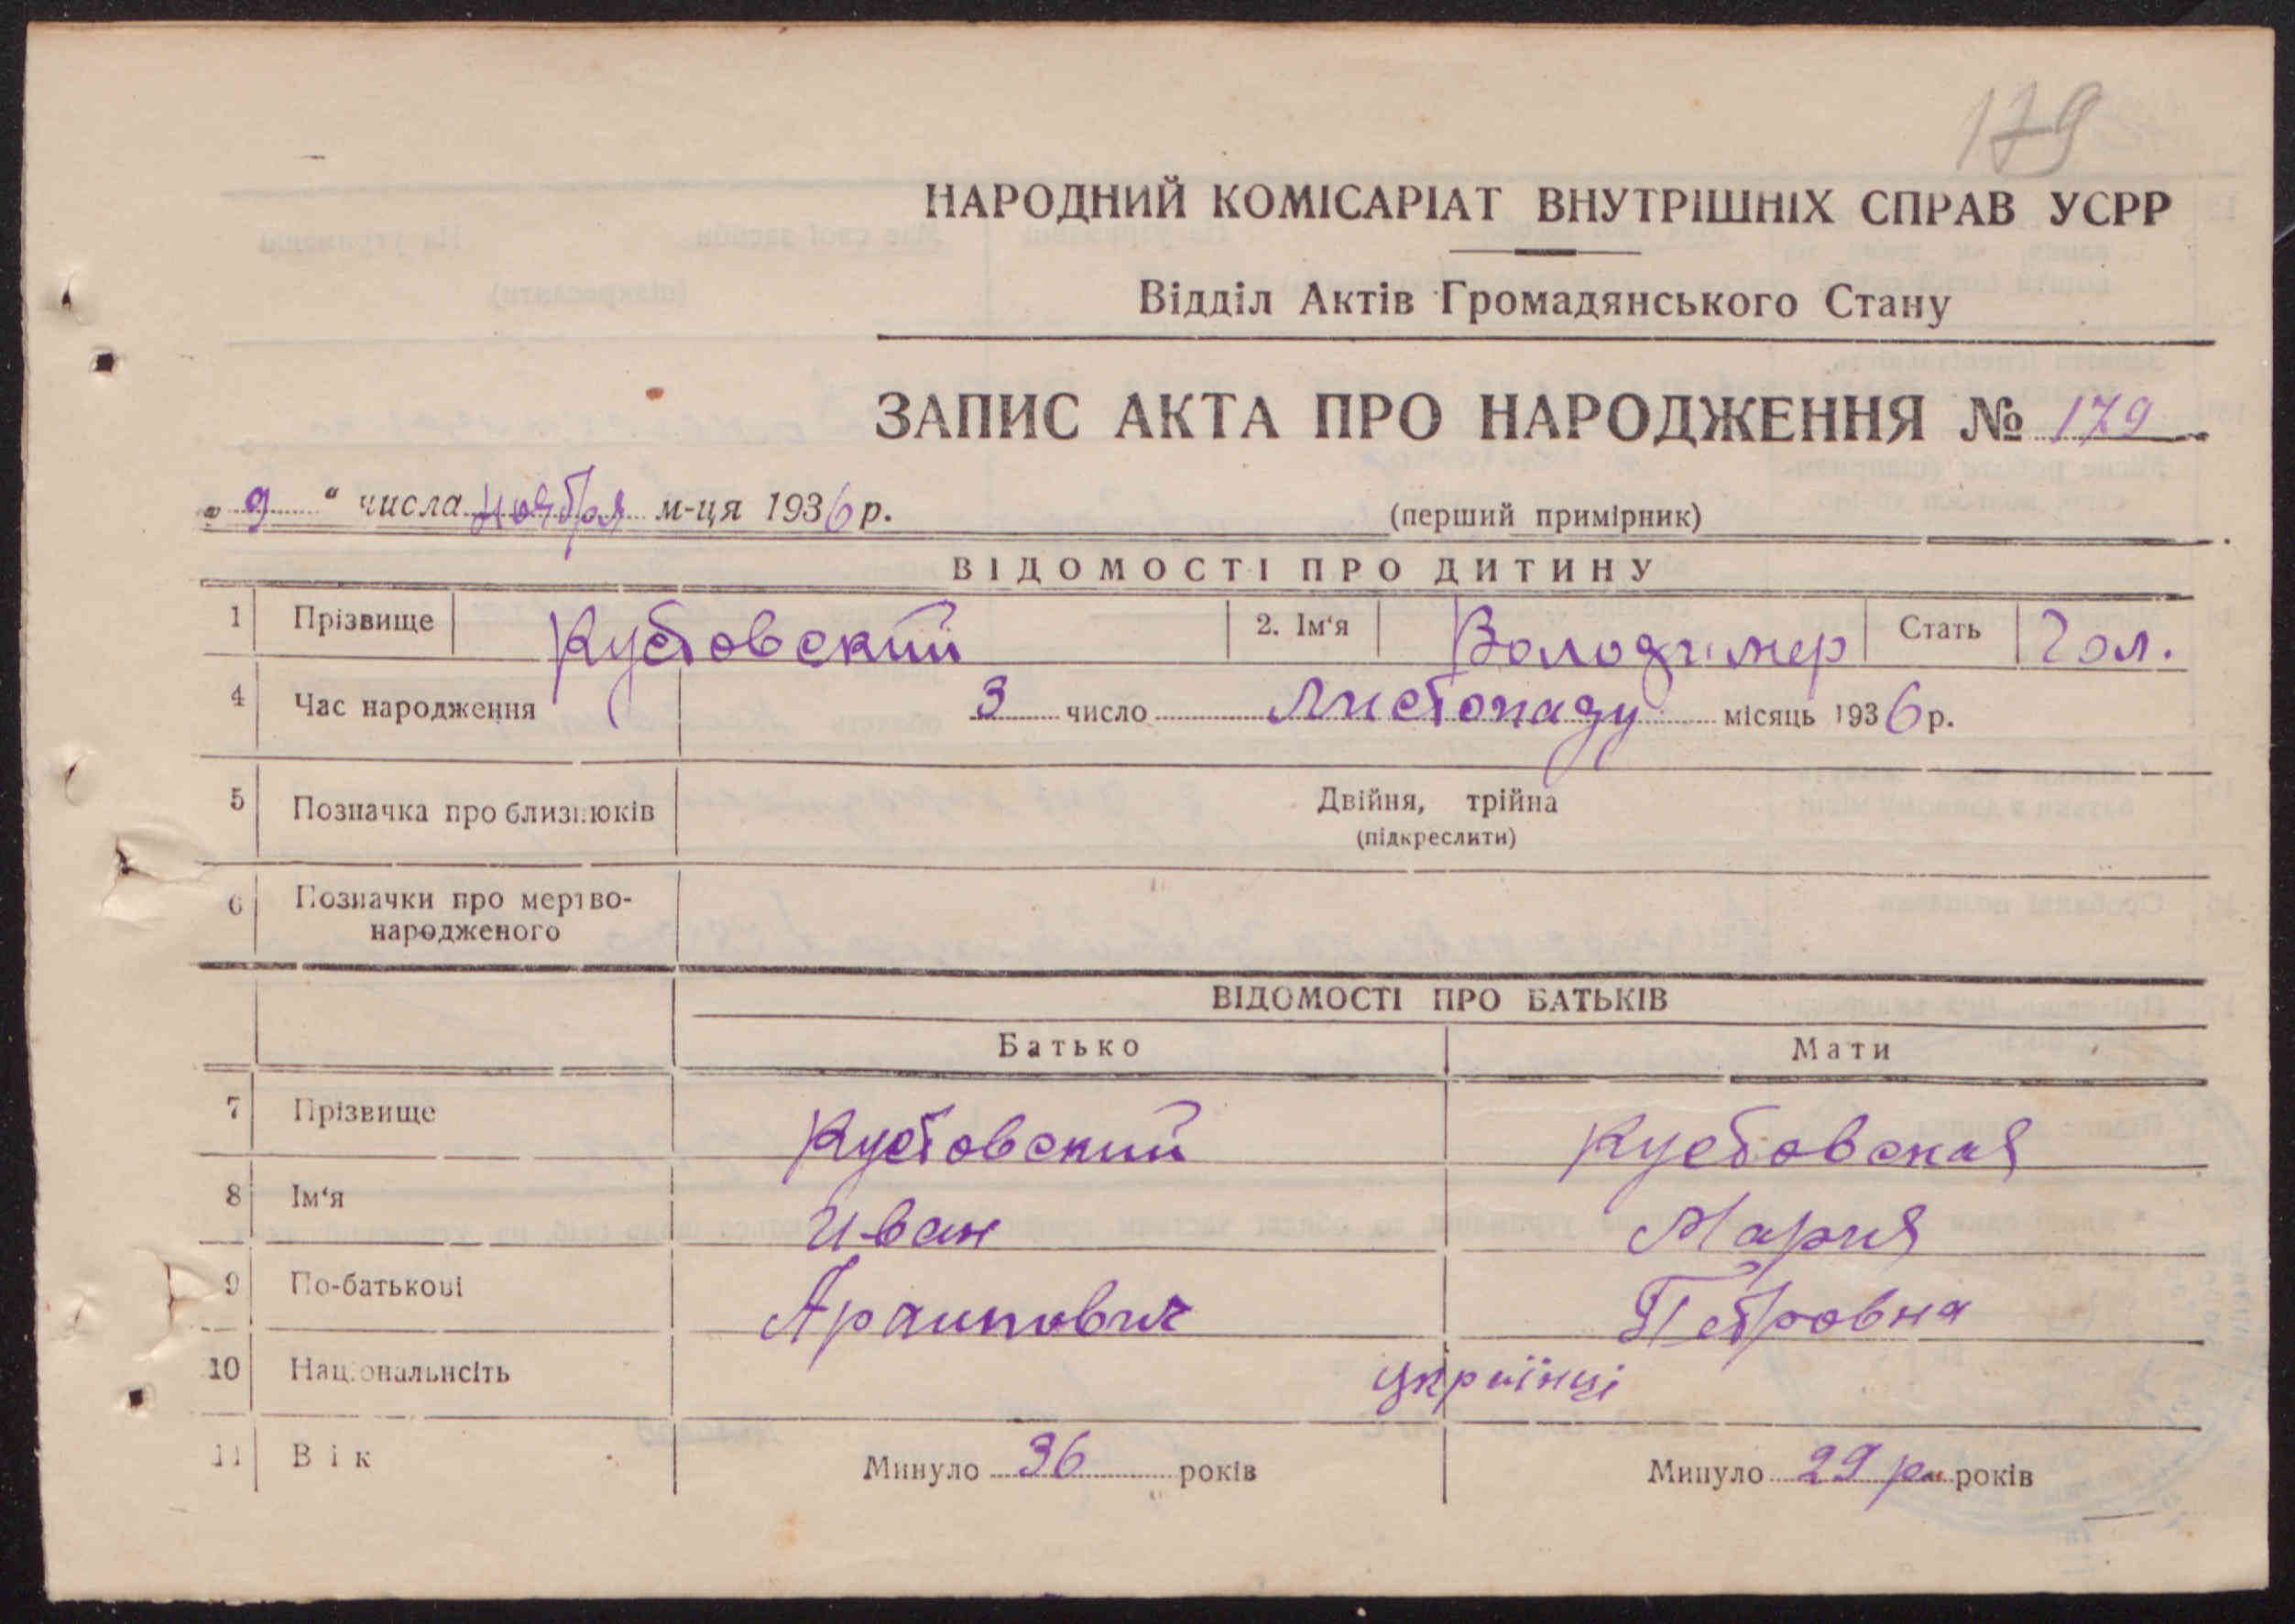 179
НАРОДНИЙ КОМІСАРІАТ ВНУТРІШНІХ СПРАВ УСРР
Відділ Актів Громадянського Стану
ЗАПИС АКТА ПРО НАРОДЖЕННЯ № 179
„ 9 " числа ноября м-ця 1936 р.
(перший примірник)
ВІДОМОСТІ ПРО ДИТИНУ
1 Прізвище Кустовский 2. Ім'я Володимер Стать Чол.
4 Час народження 3 число Листопаду місяць 1936 р.
5 Позначка про близнюків Двійня, трійна
(підкреслити)
6 Позначки про мертво-
народженого
ВІДОМОСТІ ПРО БАТЬКІВ
Батько Мати
7 Прізвище Кустовский Кустовская
8 Ім'я Иван Мария
9 По-батькові Архипович Петровна
10 Національнсіть українці
11 Вік Минуло 36 років Минуло 29 р. років